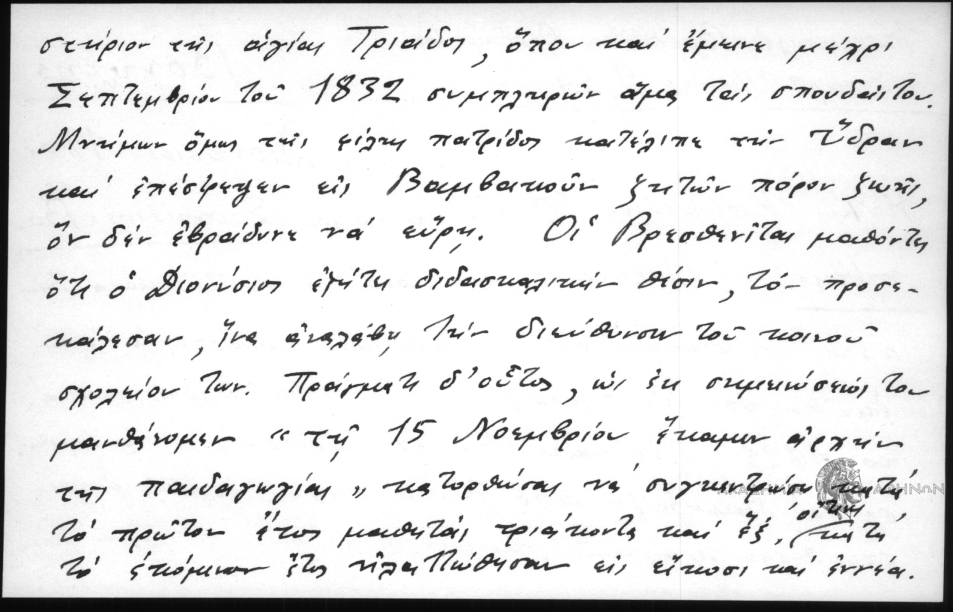 στήριον τῆς ἁγίας Τριάδος, ὅπου καί ἔμεινε μέχρι
Σεπτεμβρίου τοῦ 1832 συμπληρῶν ἅμα τάς σπουδάς του.
Μνήμων ὅμως τῆς φίλης πατρίδος κατέλιπε τήν Ὕδραν
καί ἐπέστρεψεν εἰς Βαμβακοῦν ζητῶν πόρον ζωῆς,
ὅν δέν ἐβράδυνε νά εὕρῃ. Οἱ Βρεσθενῖται μαθόντες
ὅτι ὁ Διονύσιος ἐζήτει διδασκαλικήν θέσιν, τόν προσε-
κάλεσαν, ἵνα ἀναλάβῃ τήν διεύθυνσιν τοῦ κοινοῦ
σχολείου των. Πράγματι δ' οὗτος, ὡς ἐκ σημειώσεώς του
μανθάνομεν " τῇ 15 Νοεμβρίου ἔκαμον ἀρχήν
τῆς παιδαγωγίας " κατορθώσας νά συγκεντρώσῃ κατά
τό πρῶτον ἔτος μαθητάς τριάκοντα καί ἕξ, οἵτινες κατά
τό ἑπόμενον ἔτος ἠλαττώθησαν εἰς εἴκοσι καί ἐννέα.
ΑΚΑΔΗΜΙΑ ΑΘΗΝΩΝ